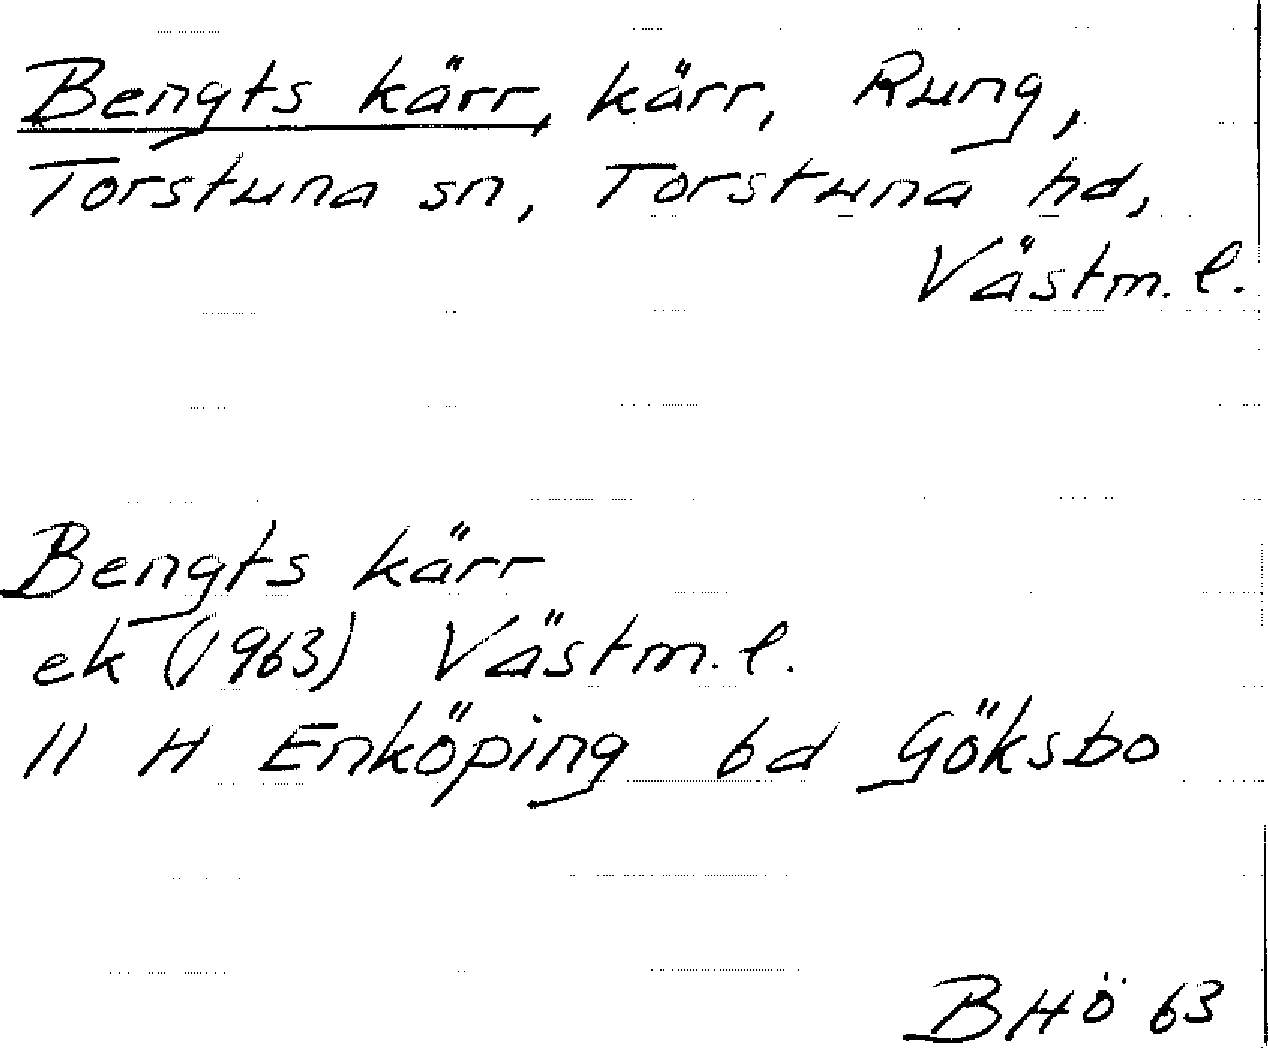 Bengts kärr, kärr, Rung,
Torstuna sn, Torstuna hd,
Västm. l.
Bengts kärr
ek (1963) Västm. l.
11 H Enköping 6d Göksbo
BHÖ 63